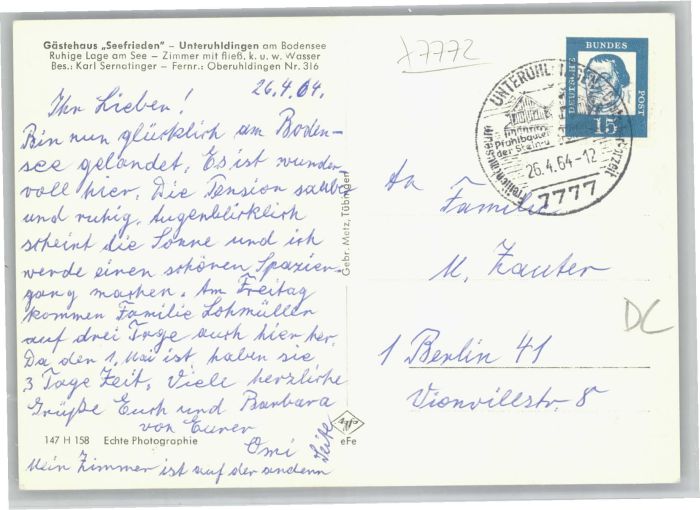 Gästehaus „Seefrieden" – Unteruhldingen am Bodensee
Ruhige Lage am See – Zimmer mit fließ. k. u. w. Wasser
Bes.: Karl Sernatinger – Fernr.: Oberuhldingen Nr. 316
26.4.64.
Ihr Lieben!
Bin nun glücklich am Boden-
see gelandet. Es ist wunder
voll hier. Die Pension sauber
und ruhig. Augenblicklich
scheint die Sonne und ich
werde einen schönen Spazier-
gang machen. Am Freitag
kommen Familie Lohmüller
auf drei Tage auch hier her.
Da den 1. Mai ist haben sie
3 Tage Zeit. Viele herzliche
Grüße Euch und Barbara
von Eurer
Omi
Mein Zimmer ist auf der andern
Seite
147 H 158 Echte Photographie
eFe
Gebr. Metz, Tübingen
x7772
DEUTSCHE BUNDES POST
15
Freilichtmuseum
Pfahlbauten
der Stein-u
26.4.64-12
7777
An
Familie
M. Zauter
1 Berlin 41
Vionvillestr. 8
DC